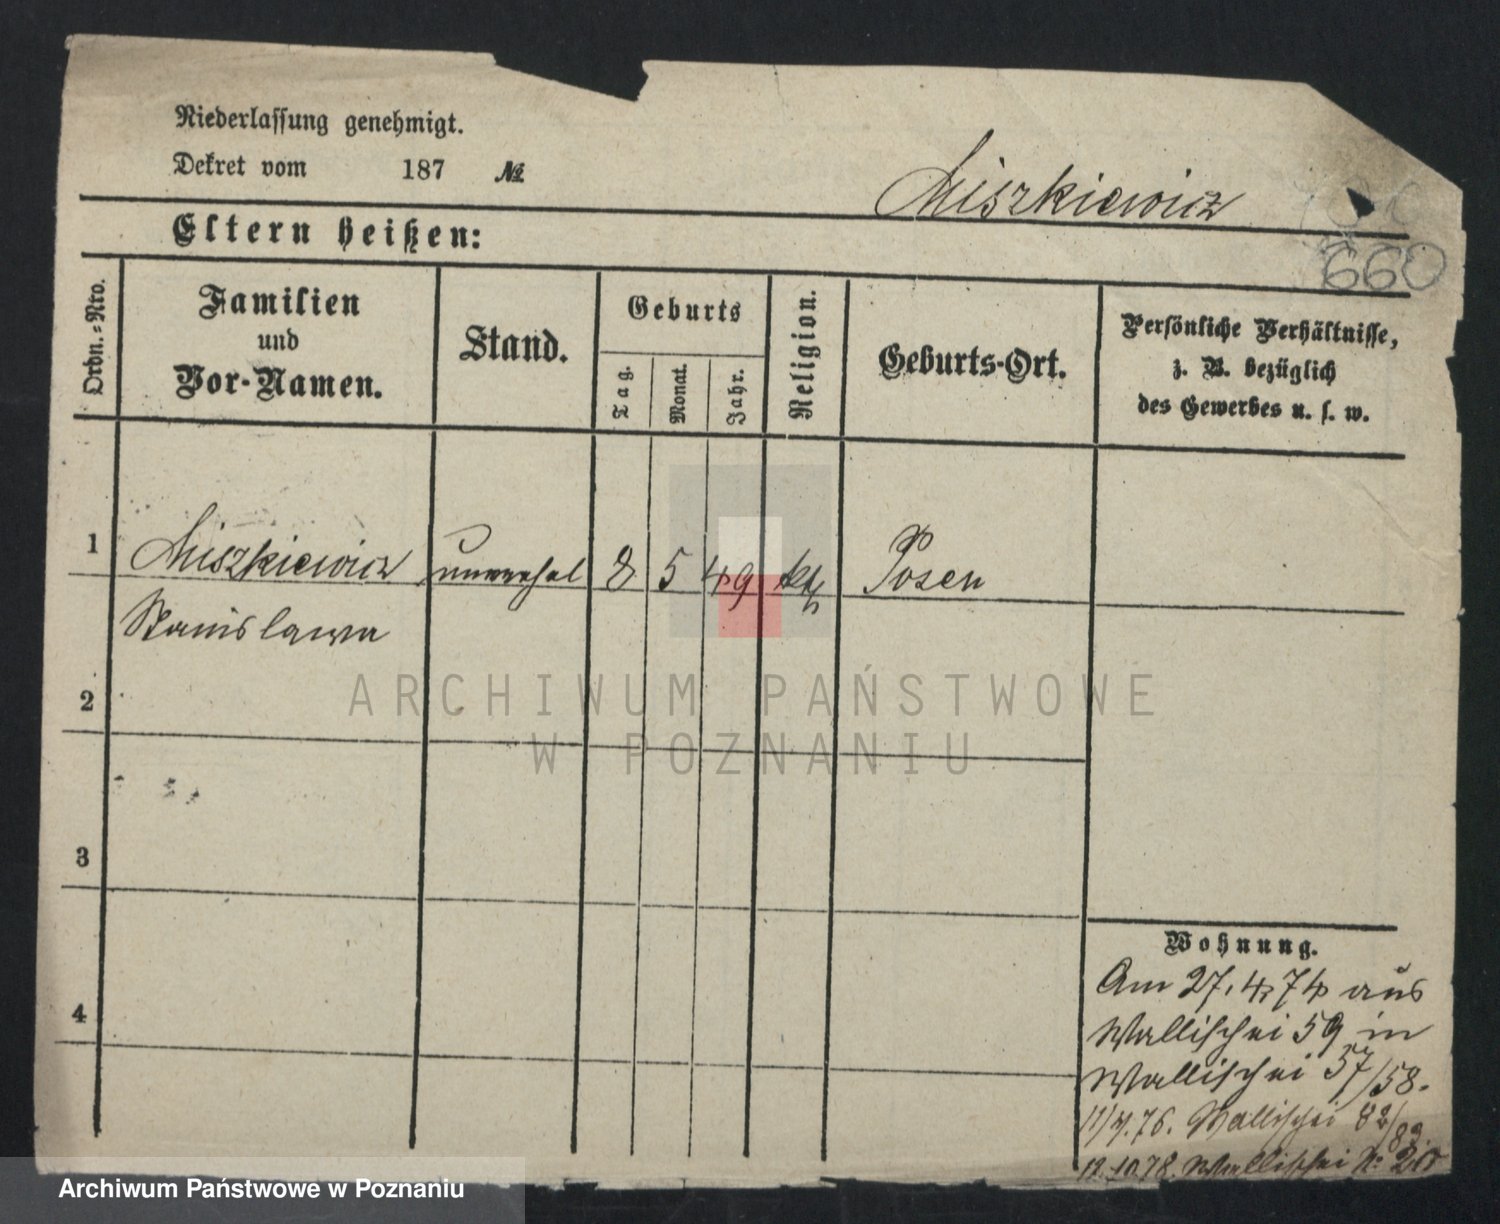 Niederlassung genehmigt.
Dekret vom 187 №
Miszkiewicz
660
Eltern heißen:
Ordn.-Nro.
Familien
und
Vor-Namen.
Stand.
Geburts
Tag.
Monat.
Jahr.
Religion.
Geburts-Ort.
Persönliche Verhältnisse,
z. B. bezüglich
des Gewerbes u. s. w.
1 Miszkiewicz unverehel 8 5 49 kth Posen
Stanislawa
2
3
4
Wohnung.
Am 27.4.74 aus
Wallischei 59 in
Wallischei 57/58.
11/4.76. Wallischei 82/83.
12.10.78. Wallischei N:
ARCHIWUM PAŃSTWOWE
W POZNANIU
Archiwum Państwowe w Poznaniu